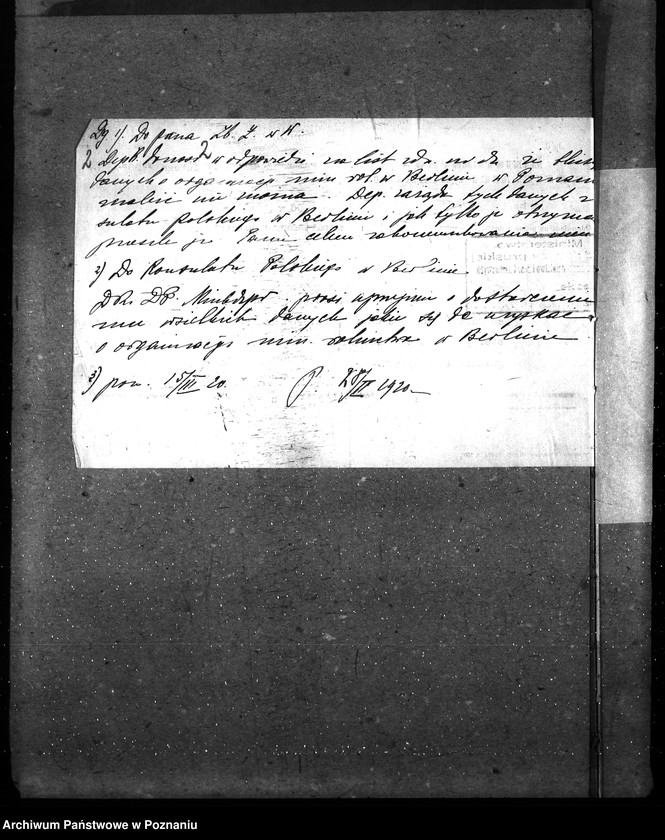 1). Do pana Zb. Z. w W.
Dep. donosi w odpowiedzi na list że bliższ
danych o organizacji min. rol. w Berlinie w Poznan
znaleść nie można. Dep. zarząda tych danych z
sulatu polskiego w Berlinie i jak tylko je otrzyma
prześle je Panu celem
2) Do Konsulatu Polskiego w Berlinie
prosi uprzejmie o dostarczenie
mu wszelkich danych jakie się da uzyskać
o organizacji min. rolnictwa w Berlinie
3) pon. 15/III 20. 28/II 1920
Archiwum Państwowe w Poznaniu